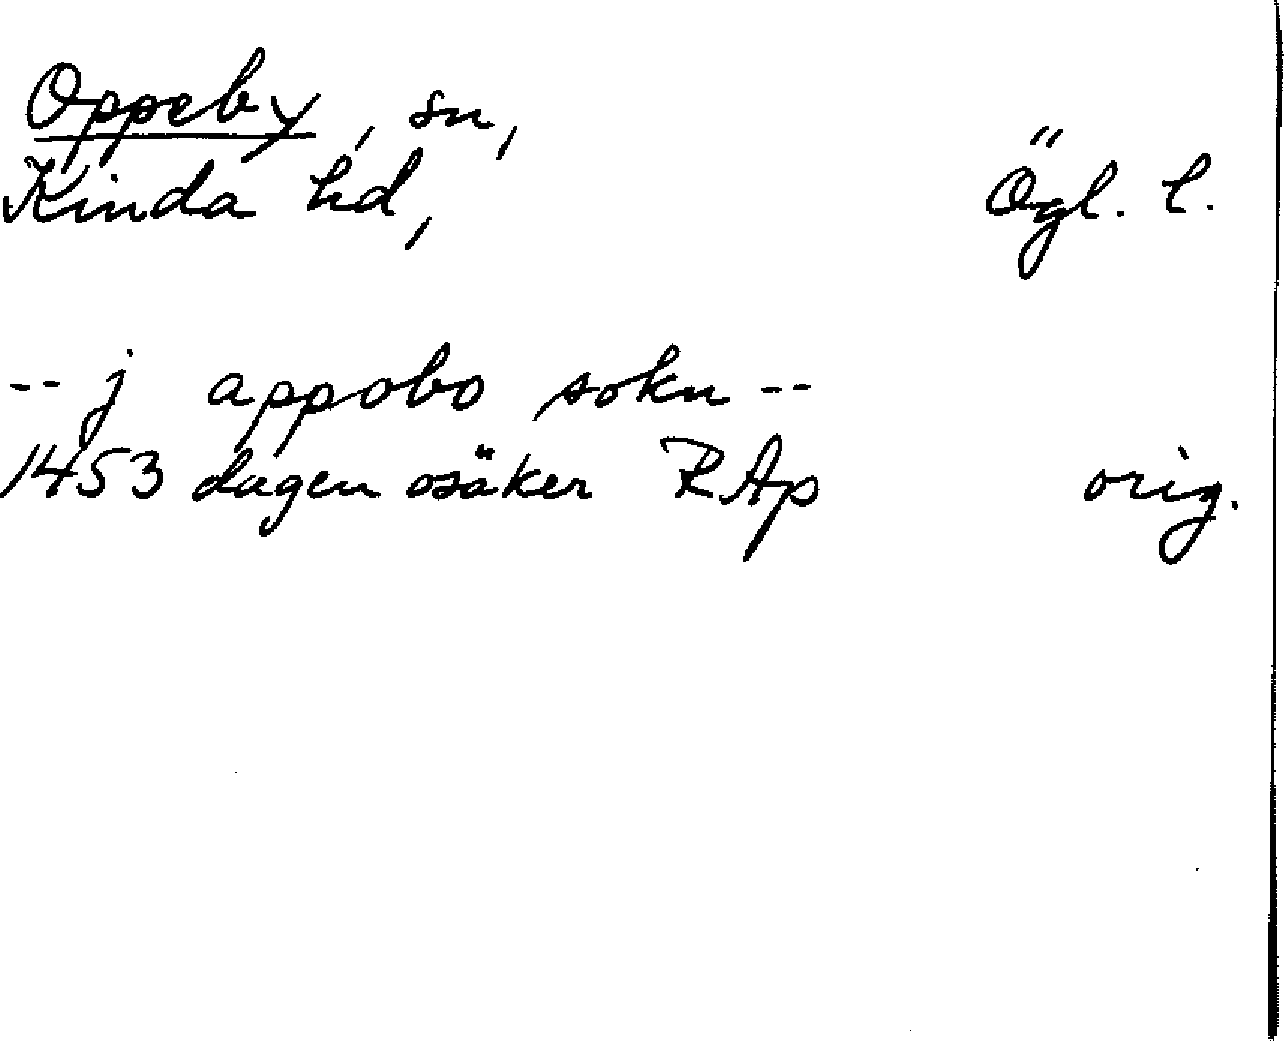 Oppeby, sn,
Kinda hd, Ögl. l.
-- j appobo sokn --
1453 dagen osäker RAp orig.